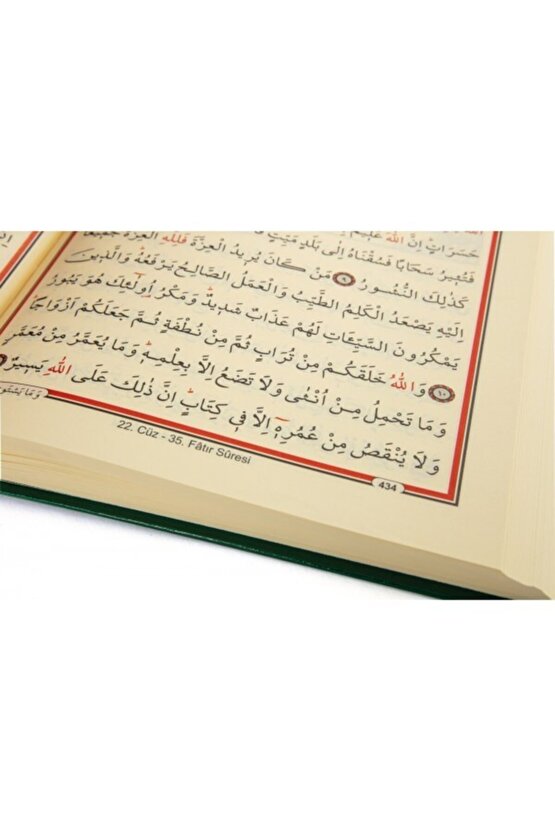 حَسَرَاتٍ اِنَّ اللّٰهَ عَلٖيمٌ
فَتُثٖيرُ سَحَابًا فَسُقْنَاهُ اِلٰى بَلَدٍ مَيِّتٍ
كَذٰلِكَ النُّشُورُ ﴿٩﴾ مَنْ كَانَ يُرٖيدُ الْعِزَّةَ فَلِلّٰهِ الْعِزَّةُ جَمٖيعًا
اِلَيْهِ يَصْعَدُ الْكَلِمُ الطَّيِّبُ وَالْعَمَلُ الصَّالِحُ يَرْفَعُهُ وَالَّذٖينَ
يَمْكُرُونَ السَّيِّـَٔاتِ لَهُمْ عَذَابٌ شَدٖيدٌ وَمَكْرُ اُولٰٓئِكَ هُوَ يَبُورُ
﴿١٠﴾ وَاللّٰهُ خَلَقَكُمْ مِنْ تُرَابٍ ثُمَّ مِنْ نُطْفَةٍ ثُمَّ جَعَلَكُمْ اَزْوَاجًا
وَمَا تَحْمِلُ مِنْ اُنْثٰى وَلَا تَضَعُ اِلَّا بِعِلْمِهٖ وَمَا يُعَمَّرُ مِنْ مُعَمَّرٍ
وَلَا يُنْقَصُ مِنْ عُمُرِهٖٓ اِلَّا فٖي كِتَابٍ اِنَّ ذٰلِكَ عَلَى اللّٰهِ يَسٖيرٌ
22. Cüz - 35. Fâtır Sûresi
434